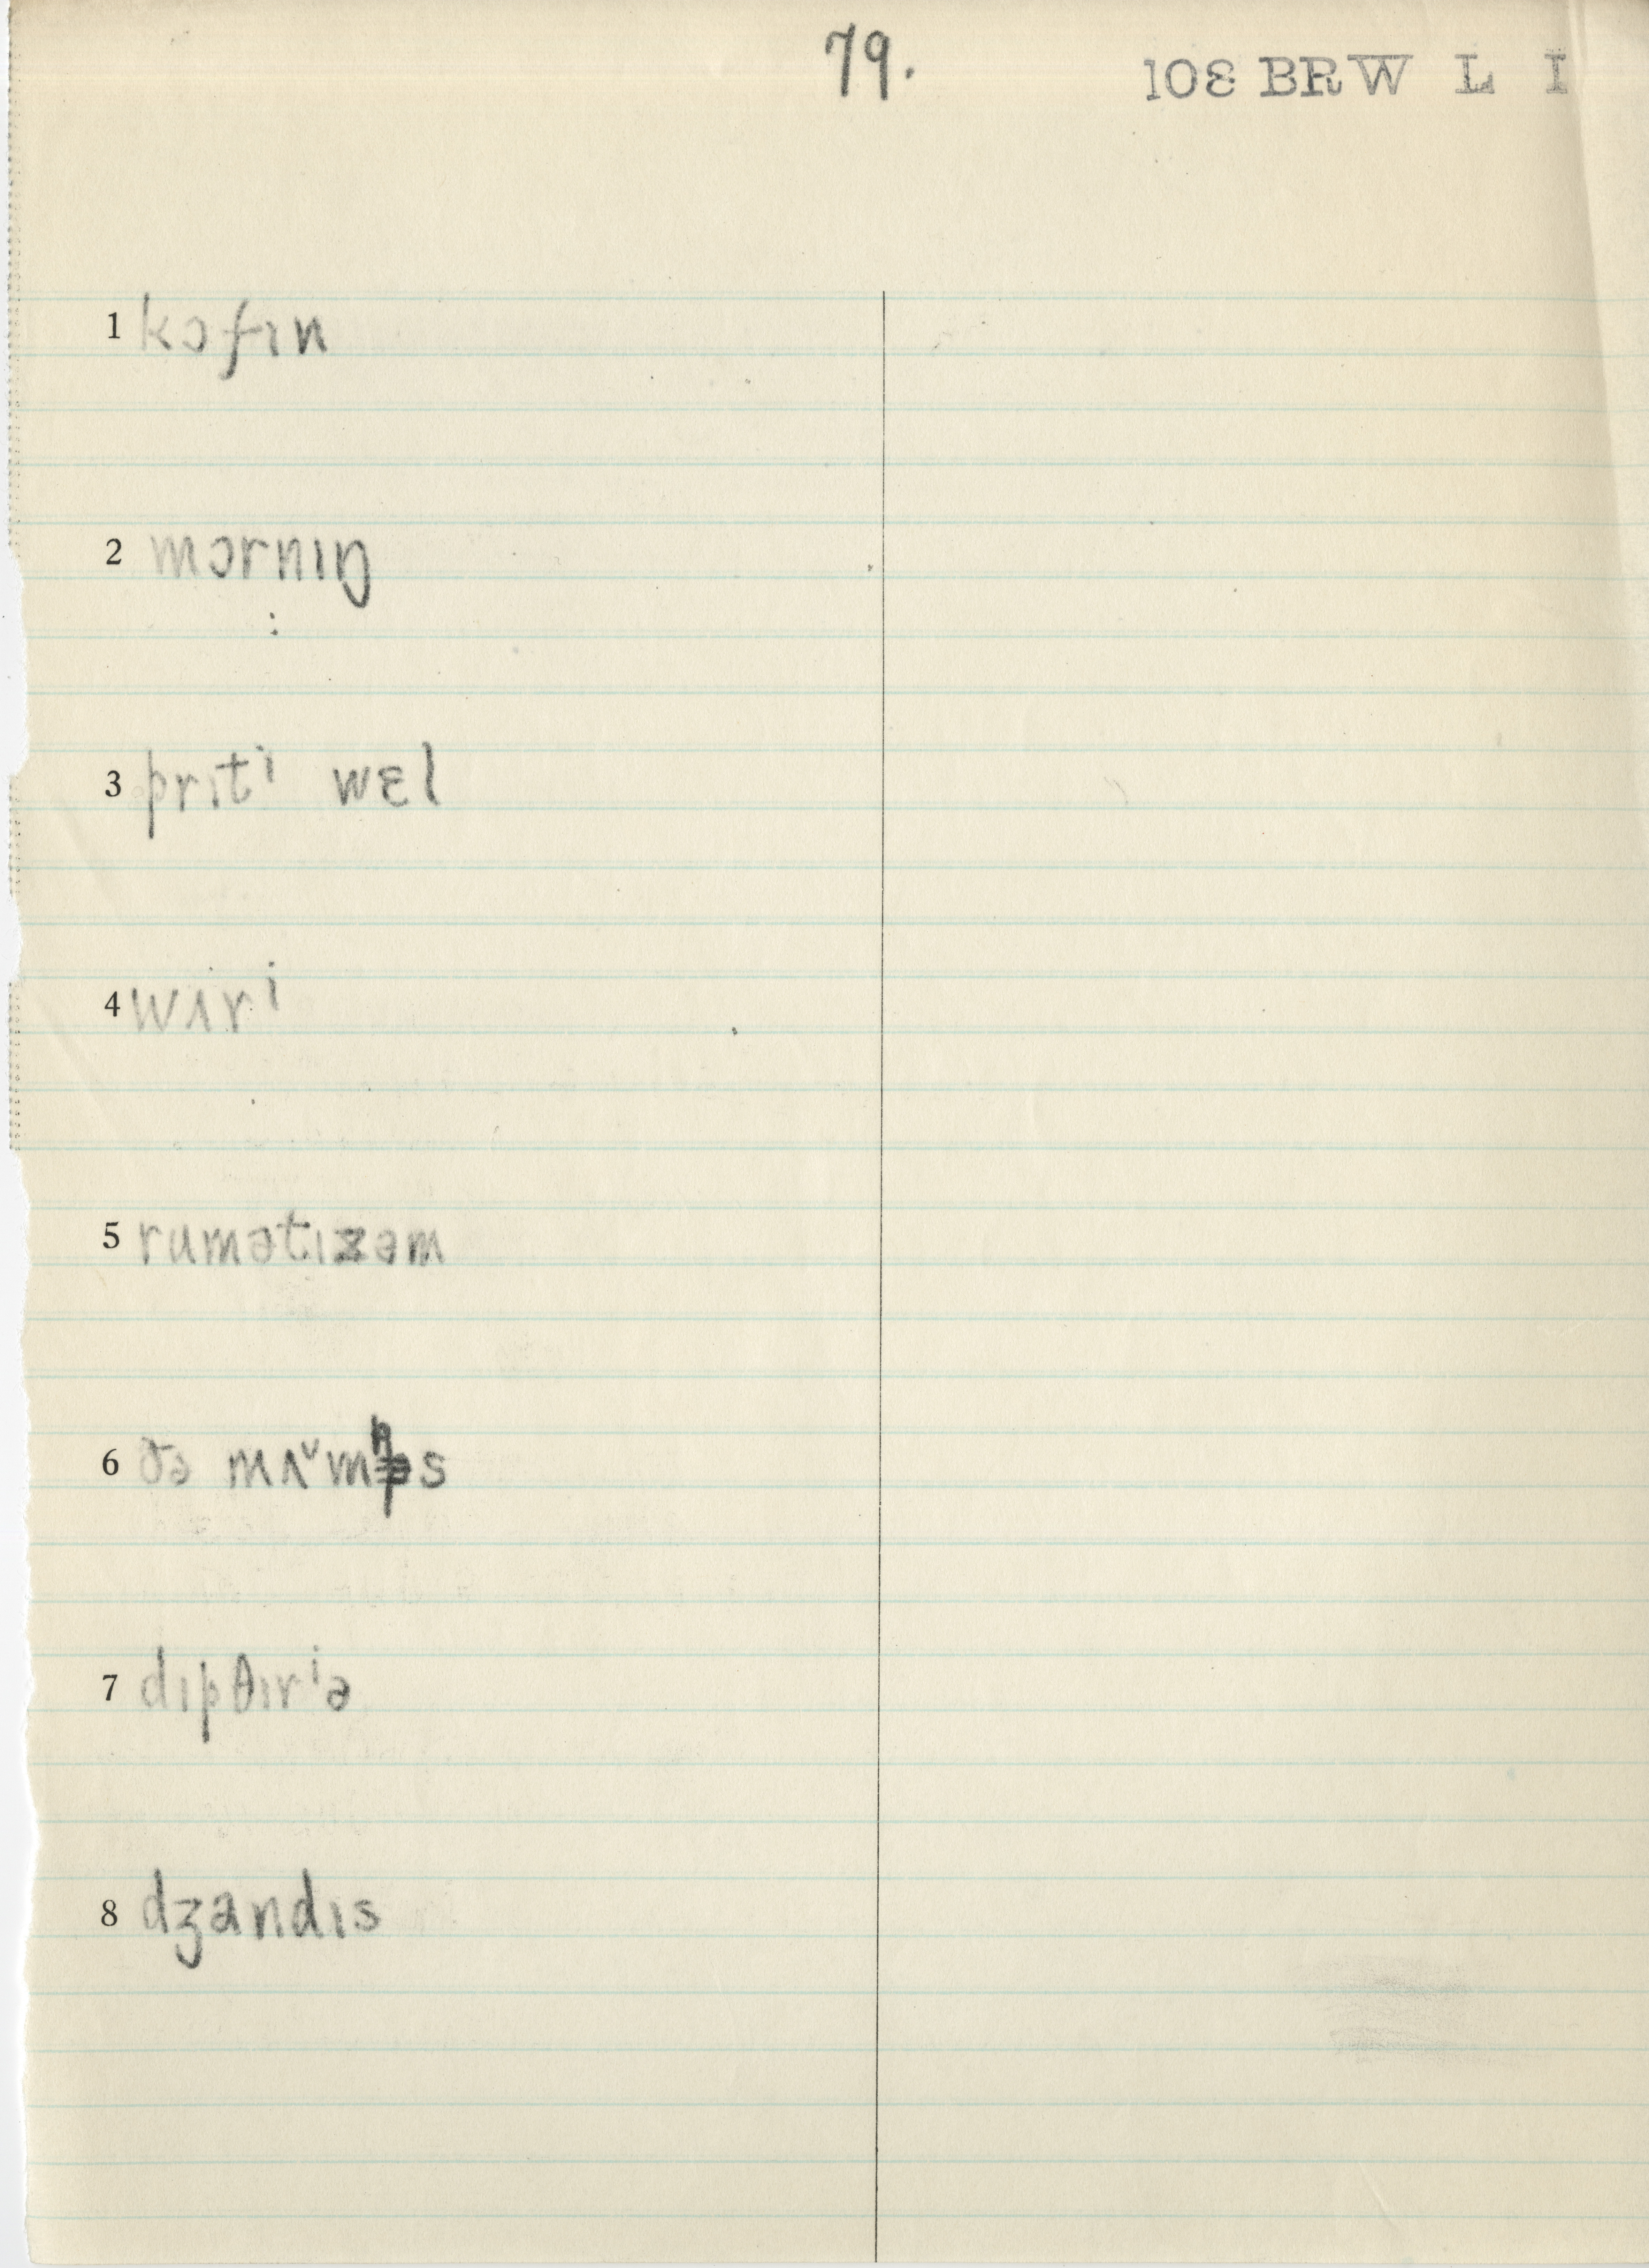 79. 108 BRW L I
1 kɔfɪn
2 mɔrnɪŋ
3 prɪtⁱ wɛl
4 wʌrⁱ
5 rumətɪzəm
6 ðə mʌᵛmps
7 dɪpθɪrⁱə
8 dʒandɪs